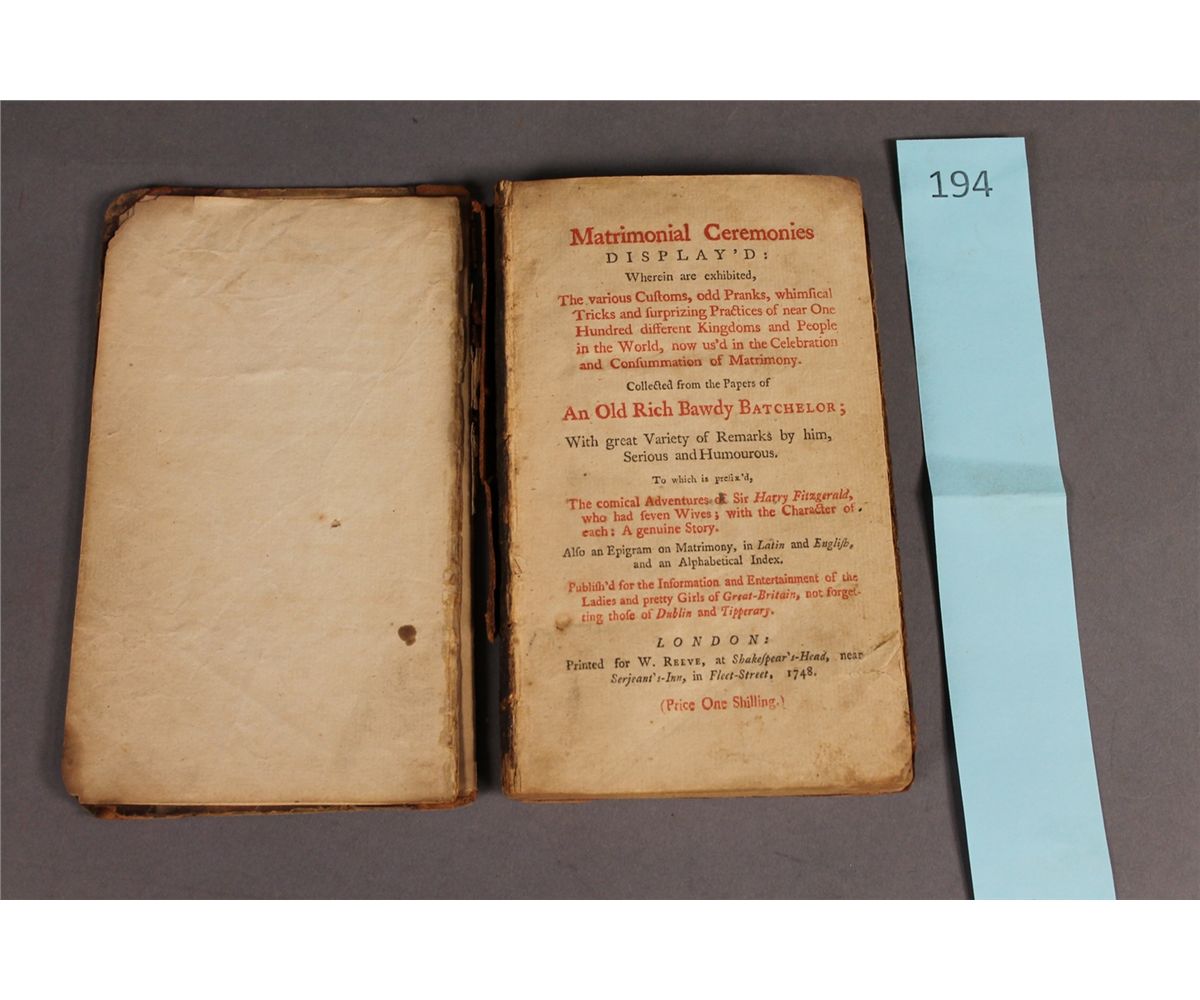 Matrimonial Ceremonies
DISPLAY'D:
Wherein are exhibited,
The various Cuſtoms, odd Pranks, whimſical
Tricks and ſurprizing Practices of near One
Hundred different Kingdoms and People
in the World, now us'd in the Celebration
and Conſummation of Matrimony.
Collected from the Papers of
An Old Rich Bawdy BATCHELOR;
With great Variety of Remarks by him,
Serious and Humourous.
To which is prefix'd,
The comical Adventures of Sir Harry Fitzgerald,
who had ſeven Wives; with the Character of
each: A genuine Story.
Alſo an Epigram on Matrimony, in Latin and Engliſh,
and an Alphabetical Index.
Publiſh'd for the Information and Entertainment of the
Ladies and pretty Girls of Great-Britain, not forget-
ting thoſe of Dublin and Tipperary.
LONDON:
Printed for W. REEVE, at Shakeſpear's-Head, near
Serjeant's-Inn, in Fleet-Street, 1748.
(Price One Shilling.)
194